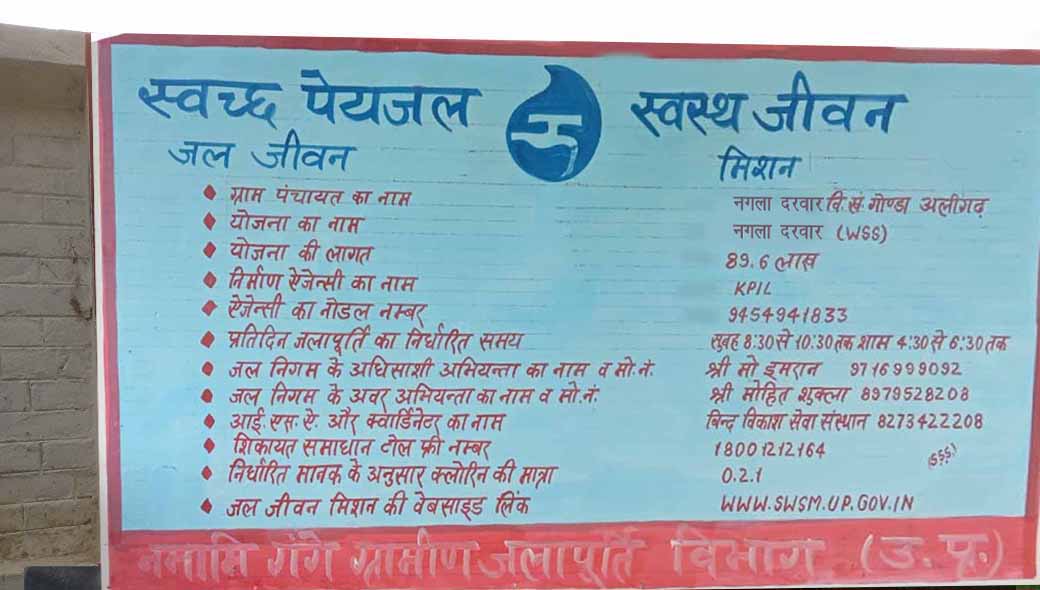 स्वच्छ पेयजल स्वस्थ जीवन
जल जीवन मिशन
ग्राम पंचायत का नाम नगला दरवार वि.खं. गोण्डा अलीगढ़
योजना का नाम नगला दरवार (WSS)
योजना की लागत 89.6 लाख
निर्माण ऐजेन्सी का नाम KPIL
ऐजेन्सी का नोडल नम्बर 9454941833
प्रतिदिन जलापूर्ति का निर्धारित समय सुबह 8:30 से 10.30 तक शाम 4:30 से 6:30 तक
जल निगम के अधिसाशी अभियन्ता का नाम व मो.नं. श्री मो इमरान 9716999092
जल निगम के अवर अभियन्ता का नाम व मो.नं. श्री मोहित शुक्ला 8979528208
आई.एस.ऐ. और क्वार्डिनेटर का नाम बिन्द विकाश सेवा संस्थान 8273422208
शिकायत समाधान टोल फ्री नम्बर 18001212164
(SSS)
निर्धारित मानक के अनुसार क्लोरिन की मात्रा 0.2.1
जल जीवन मिशन की वेबसाइड लिंक WWW.SWSM.UP.GOV.IN
नमामि गंगे ग्रामीण जलापूर्ति विभाग (उ.प्र.)